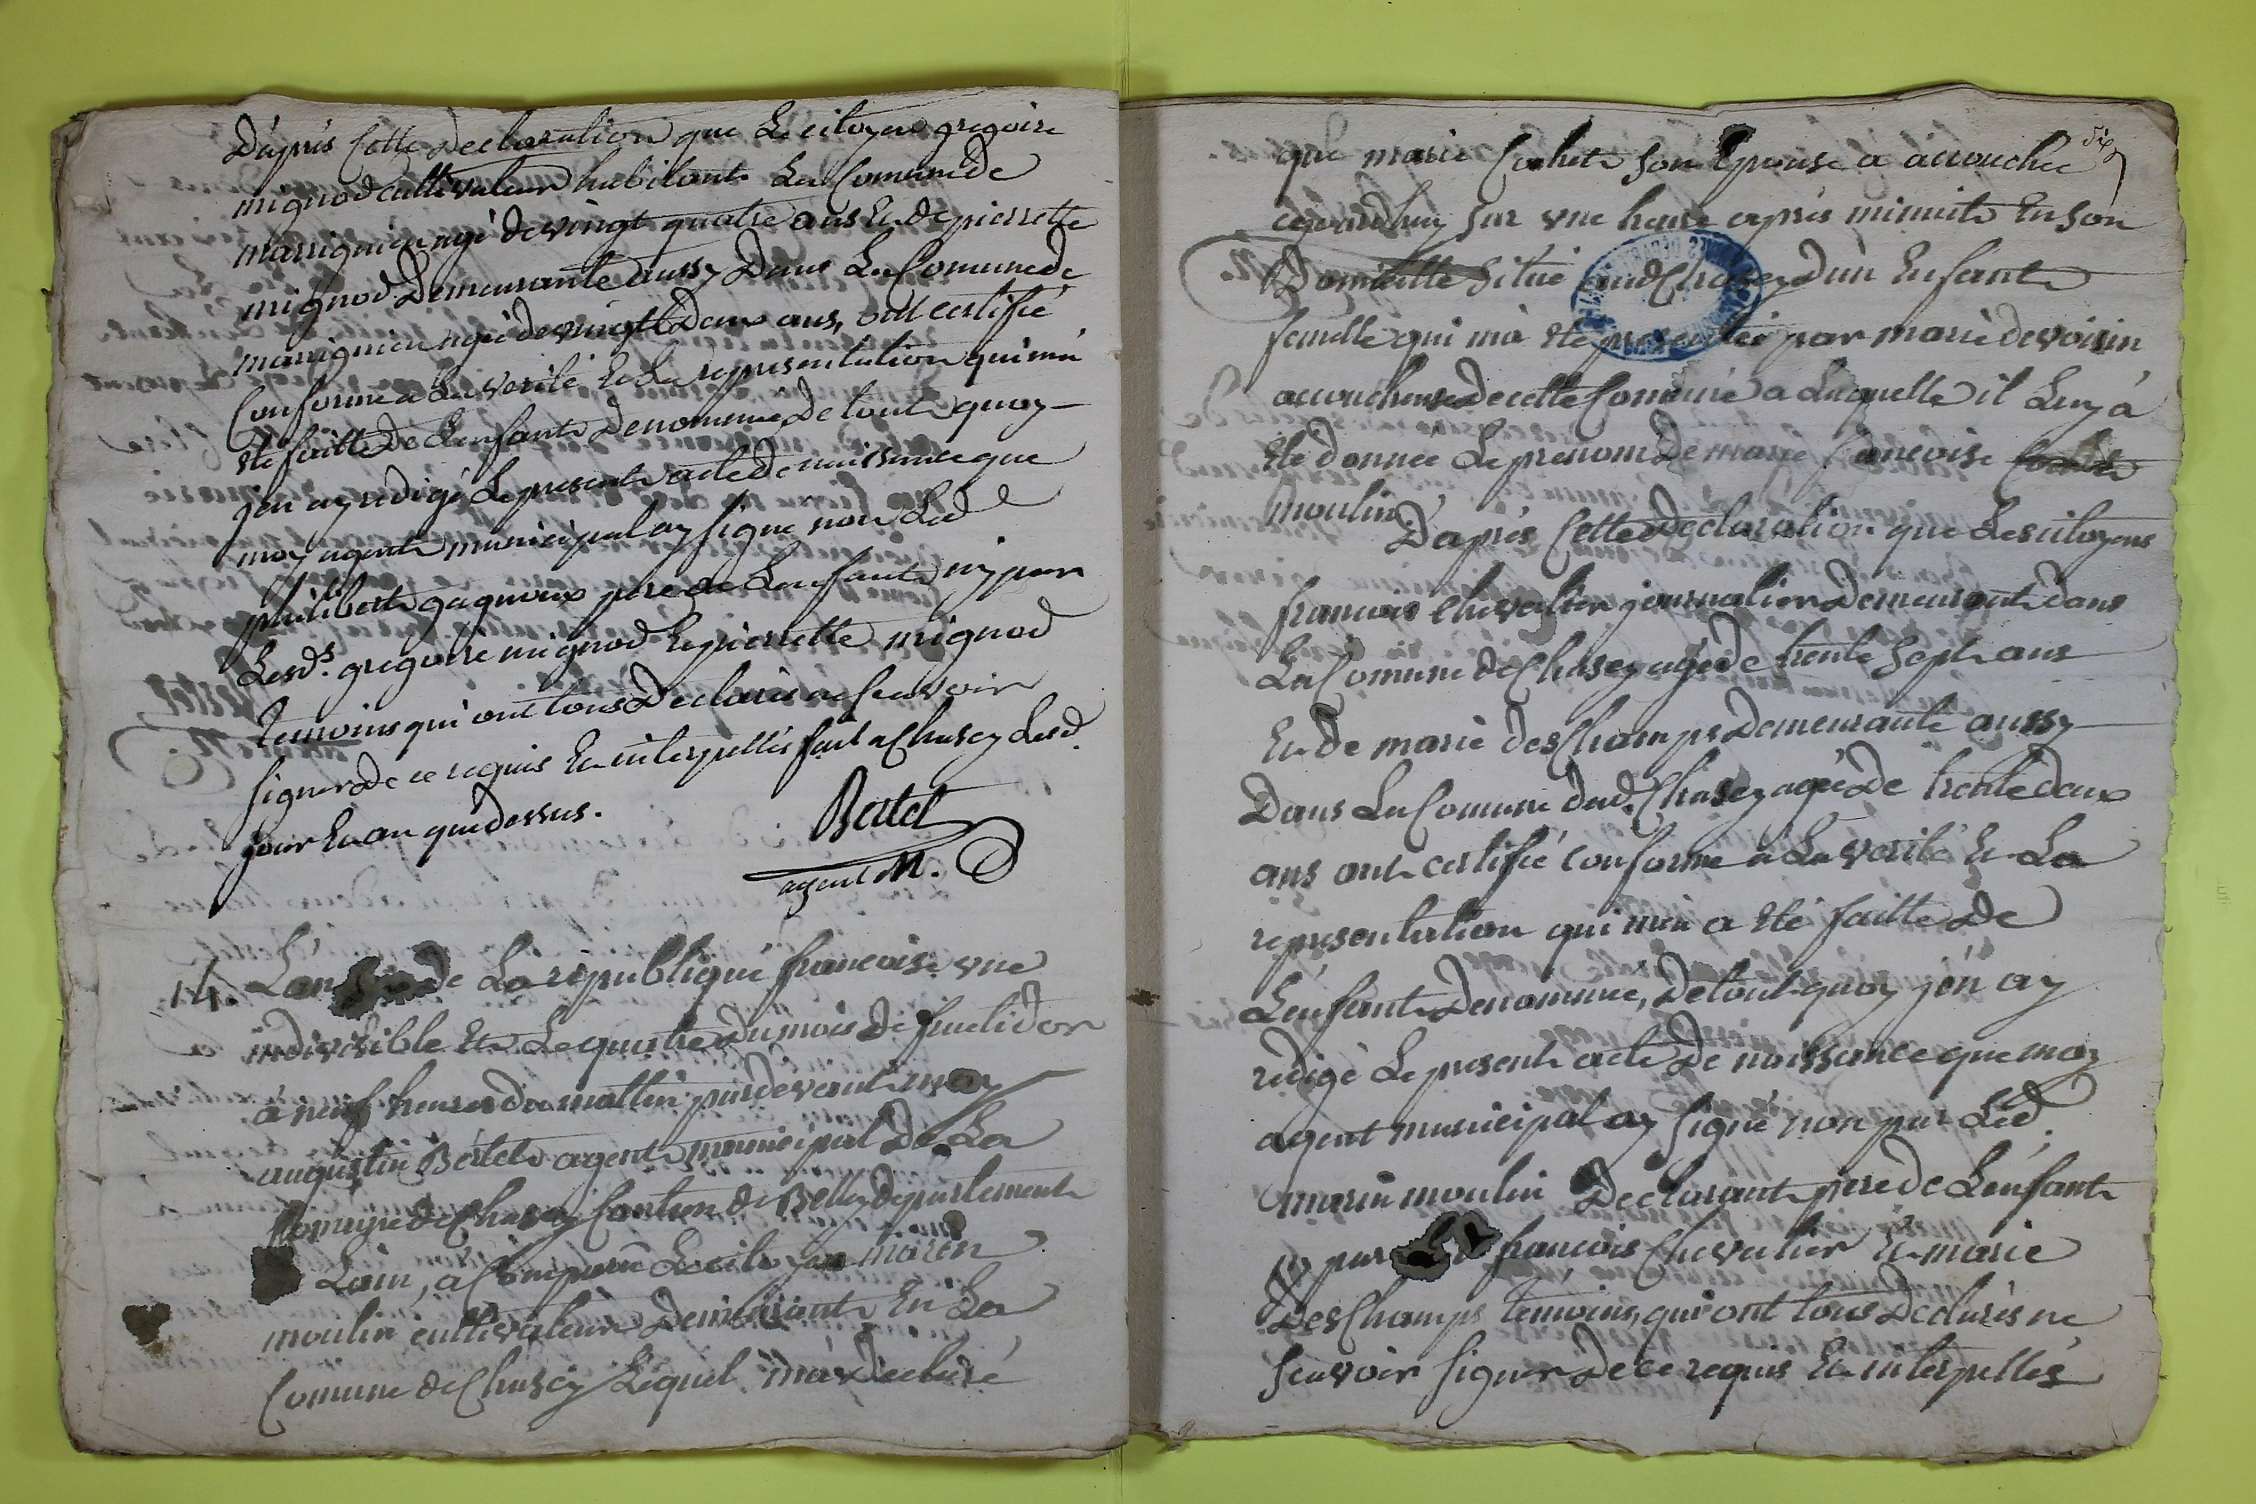 D'après Cette Declaration que Le citoyen gregoire
mignod cultivateur habitant La Comune de
marrignieu agé de vingt quatre ans Et de pierrette
mignod Demeurante aussy Dans La Comune de
marrignieu agée de vingt Deux ans, ont certifié
Conforme a La verité Et La representation qui m'a
été faitte De L'enfant Denommé De tout quoy
j'en ay redigé Le present acte de naissance que
moy agent municipal ay signé non Led
philibert gagnieux pere de L'enfant ny par
Lesds. gregoire mignod Et pierrette mignod
temoins qui ont tous Declarés ne sçavoir
signer De ce requis Et interpellés fait a Chasey Lesd.
jour Et an que dessus.
Bertet
agent M.
14. L'an de La république francoise une
indivisible Et Le quatre du mois De fructidor
à neuf heures du mattin pardevant moy
augustin Bertet agent municipal De La
Comune de Chasey Canton de Belley departement
L'ain, a Comparu Le cito marin
moulin cultivateur Demeurant En La
Comune de Chasey Lequel m'a Declaré
dix
que marie Cochet son Epouse a accouchée
cejourdhuy sur une heure après minuite En son
Domicille Situé aud Chasey d'un Enfant
femelle qui m'a été presentée par marie devoisin
accoucheuse de cette Comune a Laquelle il Luy à
Eté donnée Le prenom De marie francoise
moulin
D'après Cette Declaration que Les citoyens
francois Chevalier journalier Demeurant dans
La Comune de Chasey agé de trente sept ans
Et de marie desChamps Demeurante aussy
Dans La Comune dud. Chasey agée De trente deux
ans ont certifié conforme à La verité Et La
representation qui m'en a été faitte De
L'enfant Denommé, De tout quoy j'en ay
redigé Le present acte De naissance que moy
agent municipal ay signé non par Led.
marin moulin Declarant pere de L'enfant
ny par francois Chevalier Et marie
DesChamps temoins, qui ont tous Declarés ne
sçavoir signer De ce requis Et interpellés